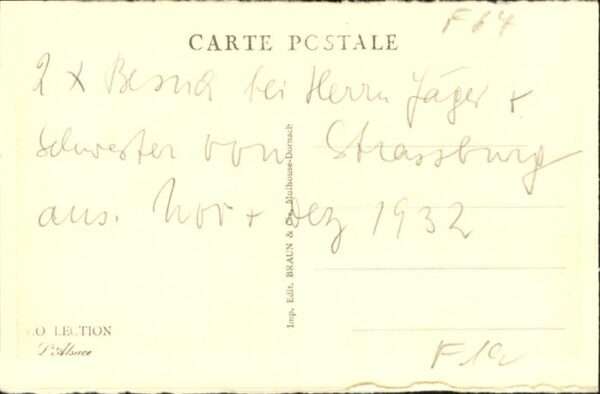 F 64
CARTE POSTALE
2 x Besuch bei Herrn Jäger +
Schwester von Strassburg
aus. Nov + Dez 1932
Imp. Edit. BRAUN & Cie, Mulhouse-Dornach
CO LECTION
L'Alsace
F 19